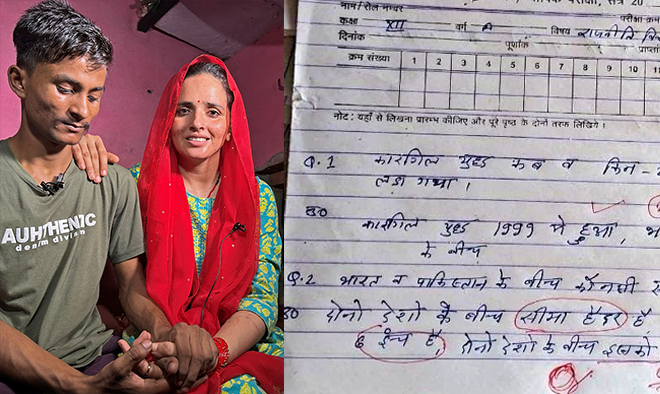 AUHTHENTIC
denim division
नाम/रोल नम्बर
परीक्षा क्रम
कक्षा XII वर्ग A विषय राजनीति
दिनांक पूर्णांक प्राप्तां
क्रम संख्या 1 2 3 4 5 6 7 8 9 10 11
नोट: यहाँ से लिखना प्रारम्भ कीजिए और पूरे पृष्ठ के दोनों तरफ लिखिये।
Q.1 कारगिल युद्ध कब व किन-
लड़ा गया।
उ0 कारगिल युद्ध 1999 मे हुआ,
के बीच
Q.2 भारत व पाकिस्तान के बीच कौनसी
उ0 दोनो देशो के बीच सीमा हैदर है
6 ईंच है, दोनो देशो के बीच इसको